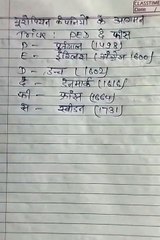 CLASSTIME
यूरोपियन कंपनियों के आगमन
Trick: PED डे फ्रांस
P- पुर्तगाल (1498)
E- इंग्लिश (अंग्रेज 1600)
D- डच (1602)
डे- डेनमार्क (1616)
फ्रां- फ्रांस (1664)
स- स्वीडन (1731)